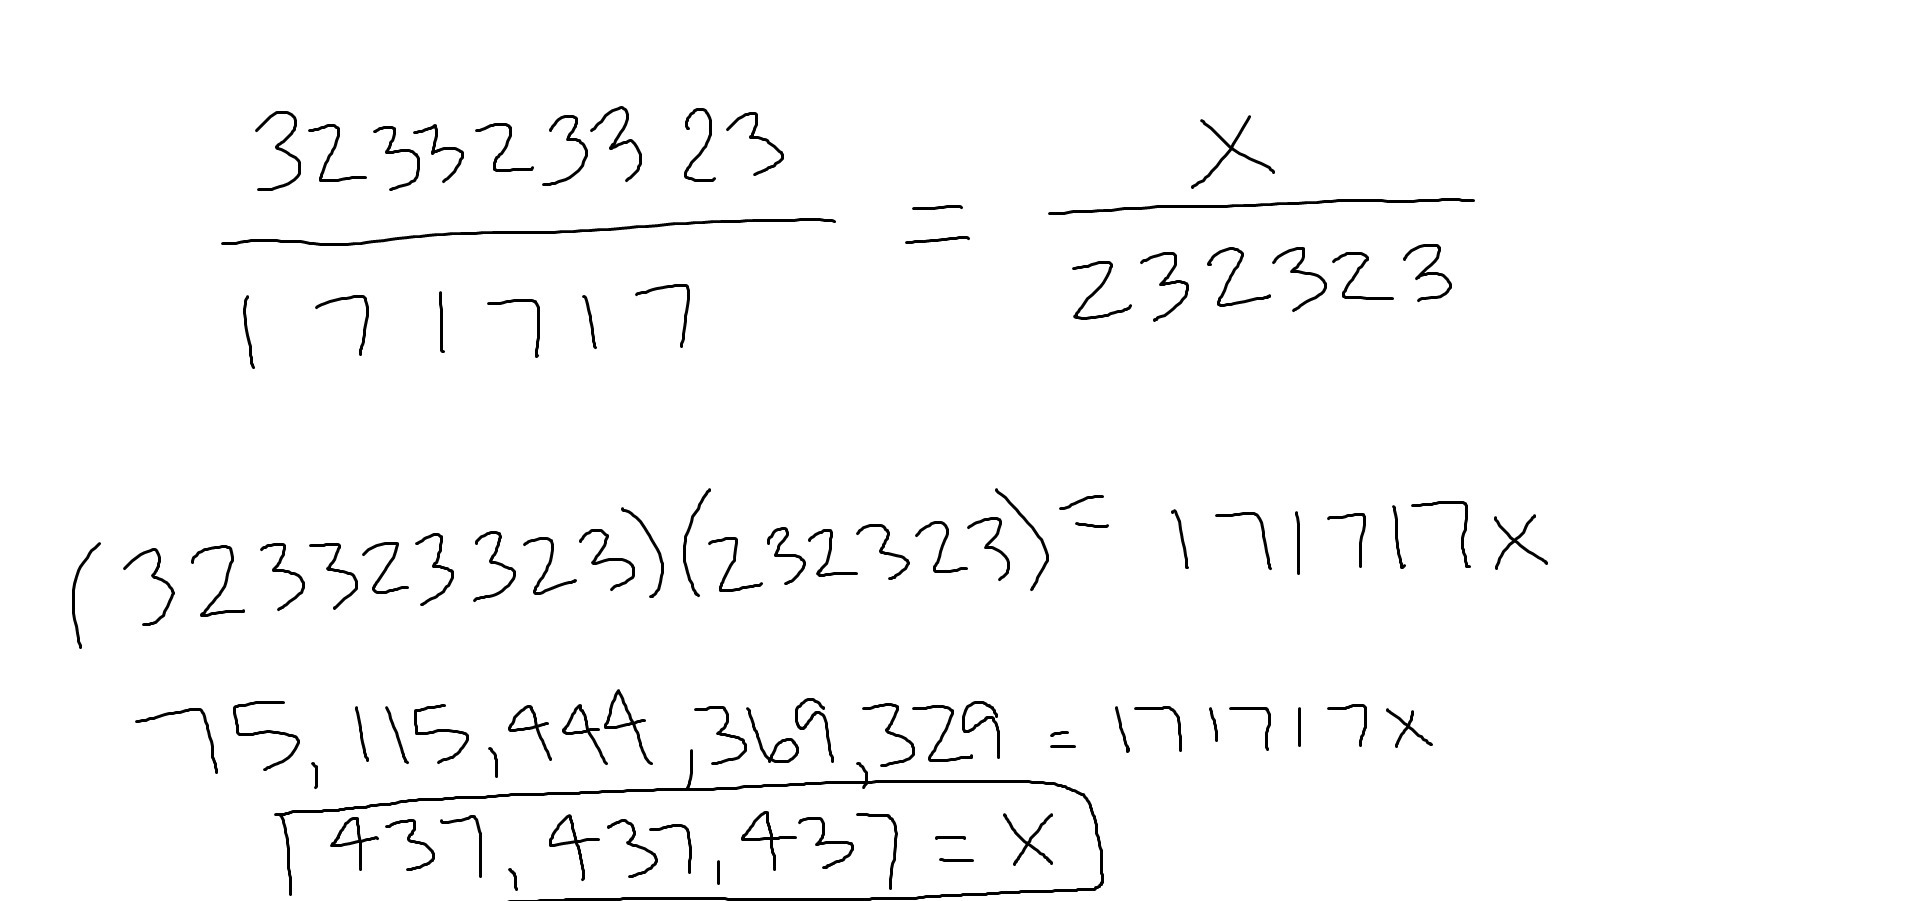 323323323 / 171717 = x / 232323
(323323323)(232323) = 171717x
75,115,444,369,329 = 171717x
437,437,437 = x